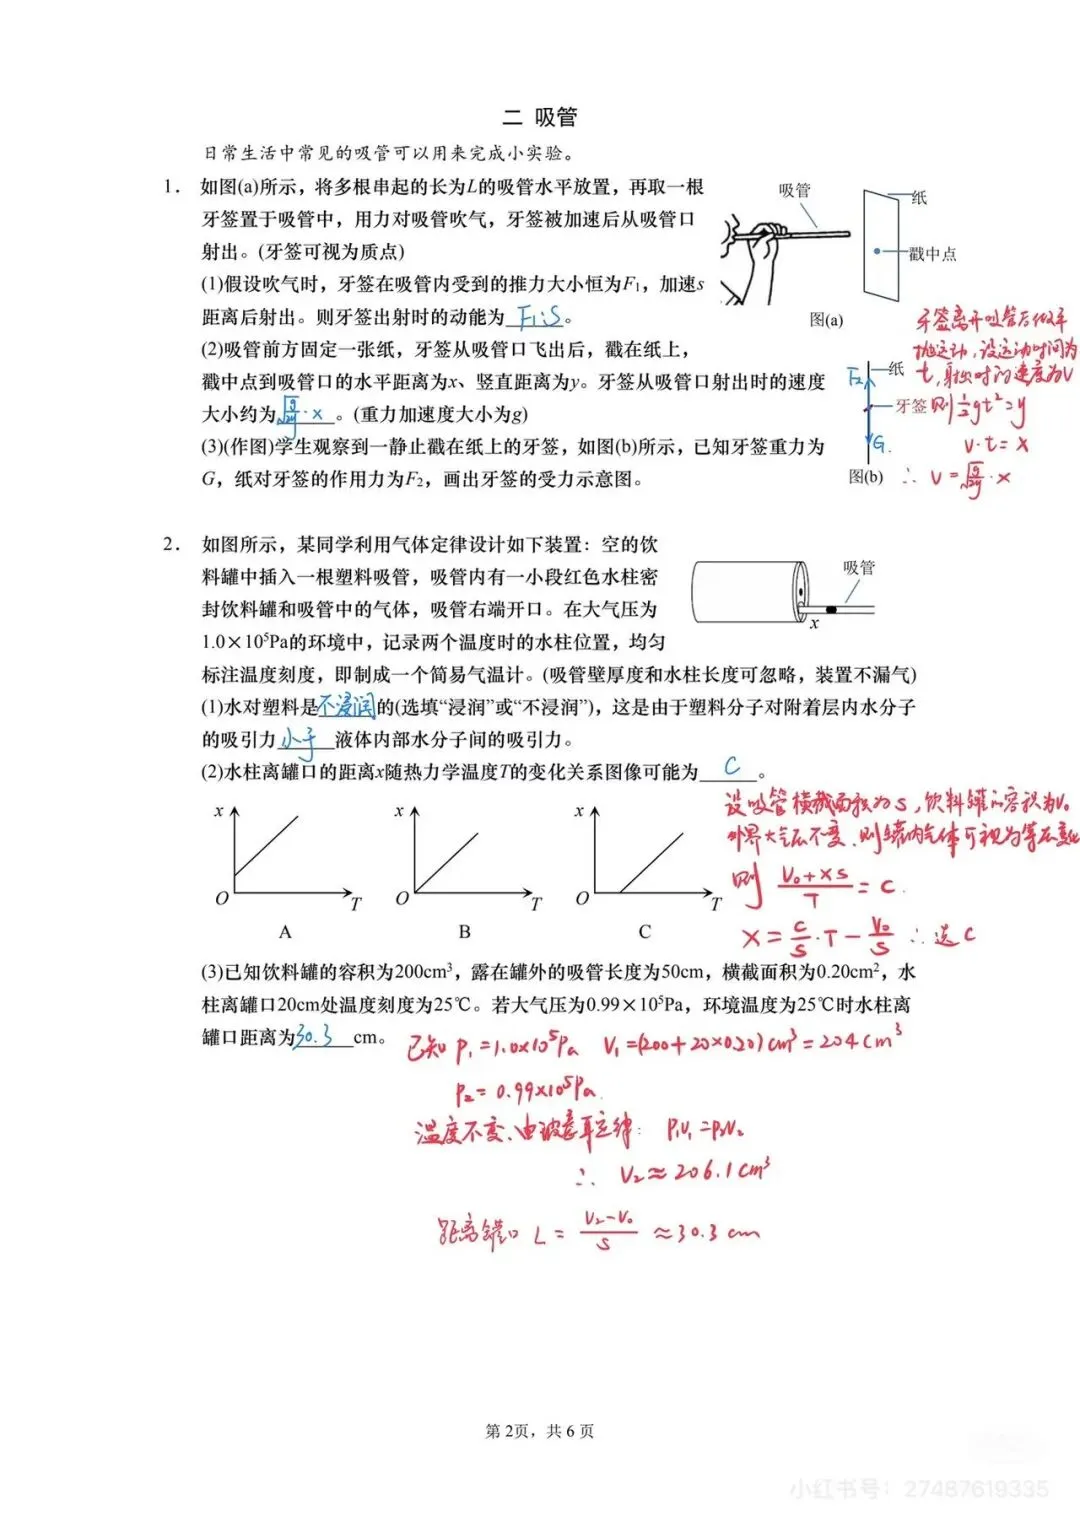 二 吸管
日常生活中常见的吸管可以用来完成小实验。
1. 如图(a)所示，将多根串起的长为L的吸管水平放置，再取一根
牙签置于吸管中，用力对吸管吹气，牙签被加速后从吸管口
射出。(牙签可视为质点)
(1)假设吹气时，牙签在吸管内受到的推力大小恒为F₁，加速s
距离后射出。则牙签出射时的动能为 F₁·S 。
(2)吸管前方固定一张纸，牙签从吸管口飞出后，戳在纸上，
戳中点到吸管口的水平距离为x、竖直距离为y。牙签从吸管口射出时的速度
大小约为 √(g/2y)·x 。(重力加速度大小为g)
(3)(作图)学生观察到一静止戳在纸上的牙签，如图(b)所示，已知牙签重力为
G，纸对牙签的作用力为F₂，画出牙签的受力示意图。
吸管
纸
戳中点
图(a)
F₂
纸
牙签
G
图(b)
牙签离开吸管后做平
抛运动，设运动时间为
t，射出时的速度为V
则 ½gt²=y
v·t=x
∴ v=√(g/2y)·x
2. 如图所示，某同学利用气体定律设计如下装置：空的饮
料罐中插入一根塑料吸管，吸管内有一小段红色水柱密
封饮料罐和吸管中的气体，吸管右端开口。在大气压为
1.0×10⁵Pa的环境中，记录两个温度时的水柱位置，均匀
标注温度刻度，即制成一个简易气温计。(吸管壁厚度和水柱长度可忽略，装置不漏气)
吸管
x
(1)水对塑料是 不浸润 的(选填“浸润”或“不浸润”)，这是由于塑料分子对附着层内水分子
的吸引力 小于 液体内部水分子间的吸引力。
(2)水柱离罐口的距离x随热力学温度T的变化关系图像可能为 C 。
x O T
A
x O T
B
x O T
C
设吸管横截面积为S，饮料罐的容积为V₀
外界大气压不变、则罐内气体可视为等压变化
则 (V₀+xS)/T = C.
X = C/S·T − V₀/S ∴选C
(3)已知饮料罐的容积为200cm³，露在罐外的吸管长度为50cm，横截面积为0.20cm²，水
柱离罐口20cm处温度刻度为25℃。若大气压为0.99×10⁵Pa，环境温度为25℃时水柱离
罐口距离为 30.3 cm。
已知 P₁=1.0×10⁵Pa V₁=(200+20×0.20)cm³=204cm³
P₂=0.99×10⁵Pa.
温度不变、由玻意耳定律： P₁V₁=P₂V₂
∴ V₂≈206.1cm³
距离罐口 L = (V₂−V₀)/S ≈30.3 cm
第 2页，共 6 页
小红书号：27487619335